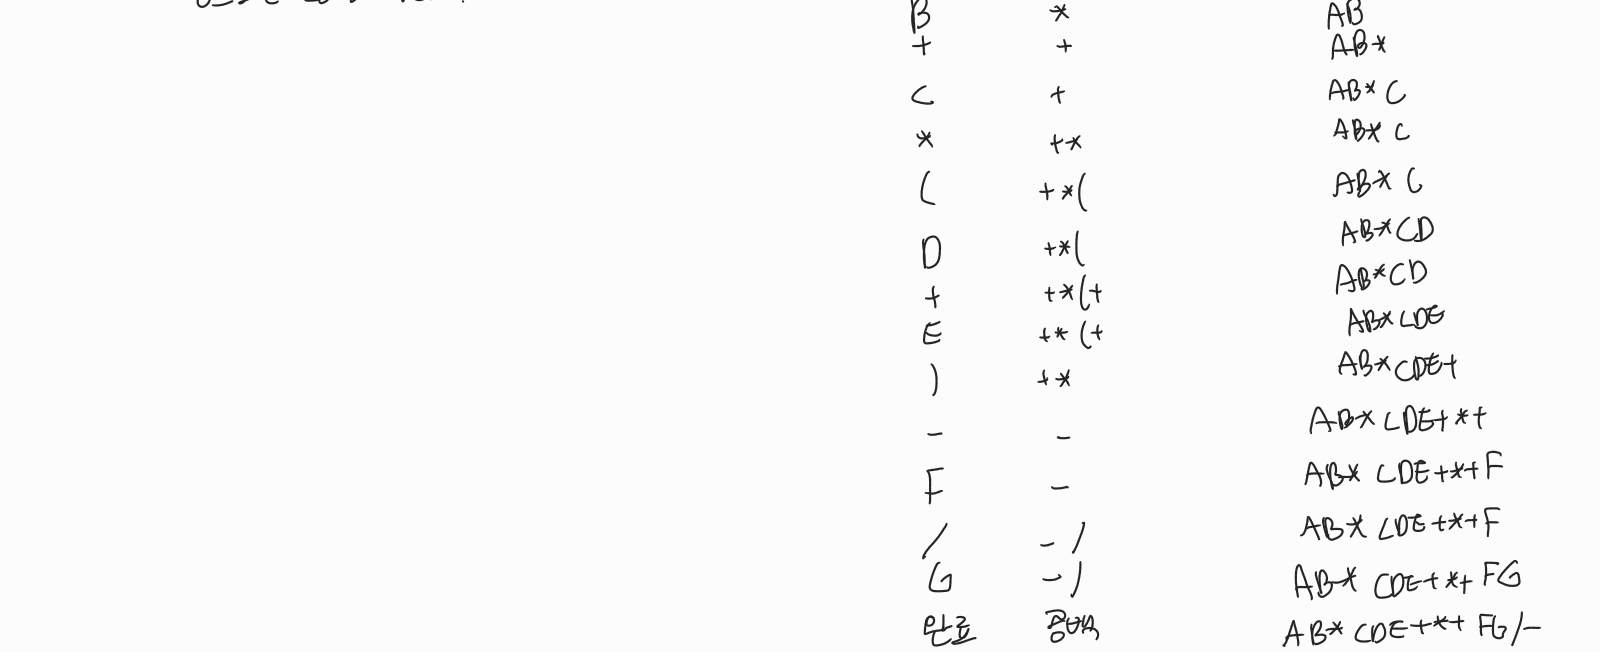 B * AB
+ + AB*
C + AB* C
* +* AB* C
( +*( AB* C
D +*( AB*CD
+ +*(+ AB*CD
E +*(+ AB*CDE
) +* AB*CDE+
- - AB* CDE+*+
F - AB* CDE+*+F
/ -/ AB* CDE+*+F
G -/ AB* CDE+*+ FG
완료 공백 AB* CDE+*+ FG/-